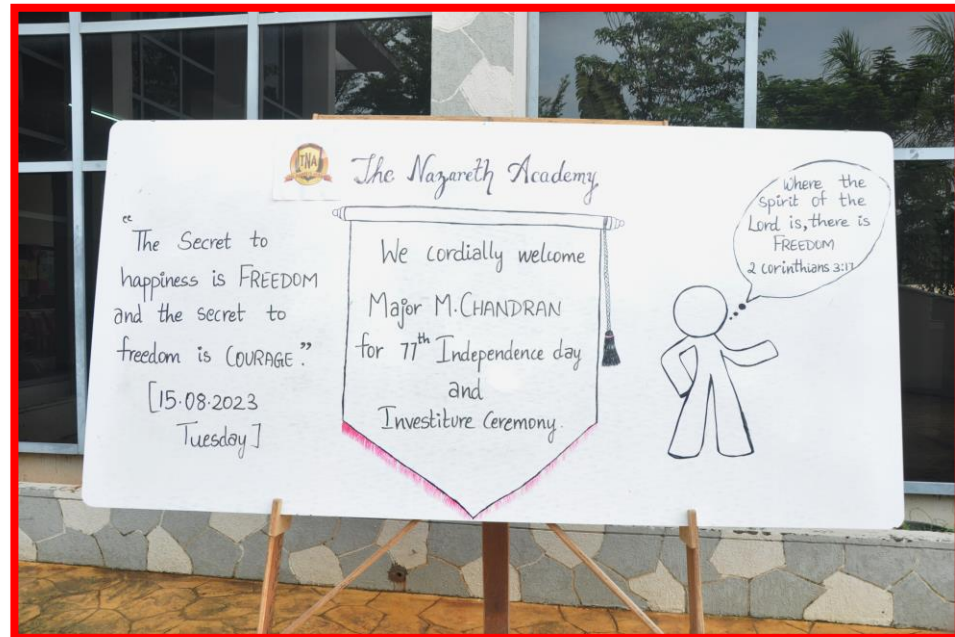 TNA
The Nazareth Academy
"The Secret to
happiness is FREEDOM
and the secret to
freedom is COURAGE."
[15.08.2023
Tuesday]
We cordially welcome
Major M.CHANDRAN
for 77th Independence day
and
Investiture Ceremony.
Where the
Spirit of the
Lord is, there is
FREEDOM
2 Corinthians 3:17